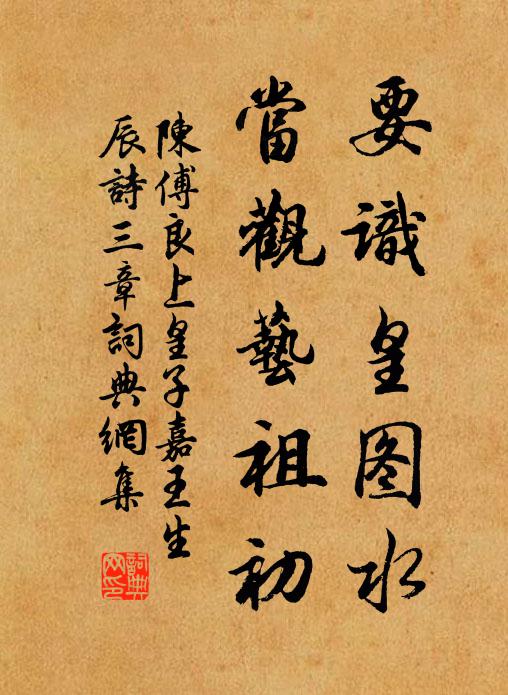 要識皇图水
當觀藝祖初
陳傅良上皇子嘉王生
辰詩三章詞典網集
詞典网印